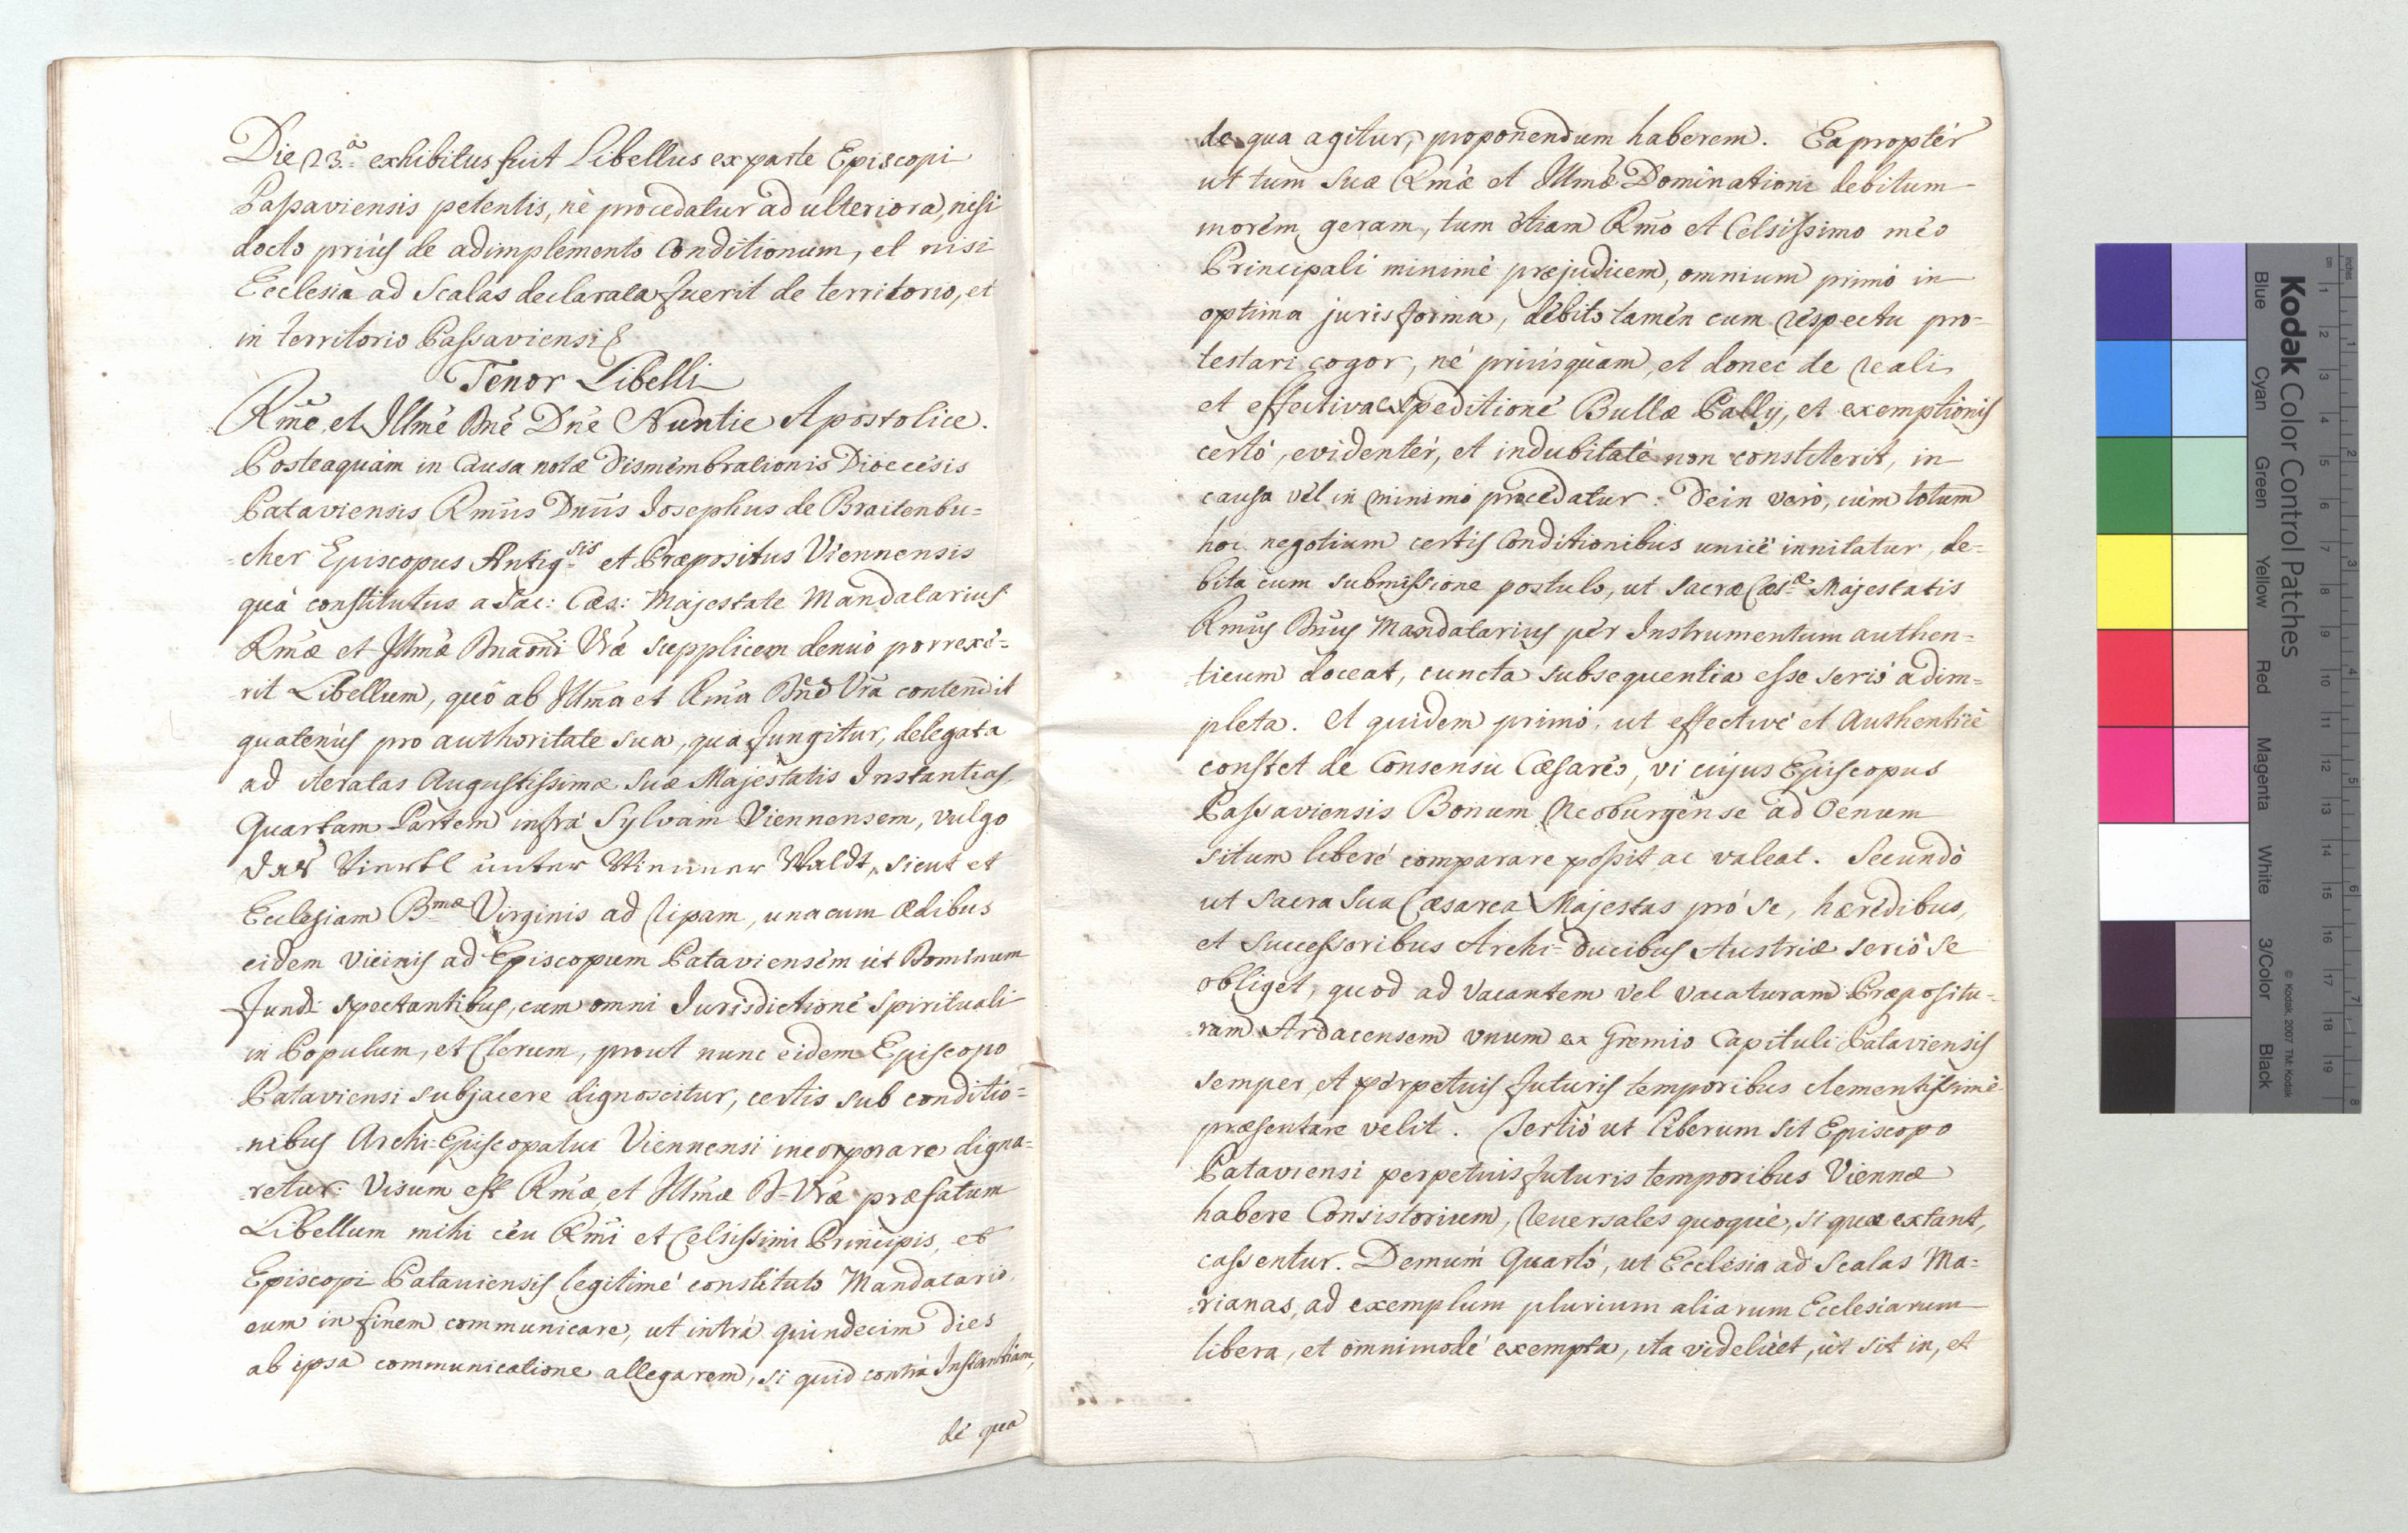 Die 23.ª exhibitus fuit Libellus ex parte Episcopi
Passaviensis petentis, nè procedatur ad ulteriora, nisi
docto priùs de adimplemento Conditionum, et nisi
Ecclesia ad Scalas declarata fuerit de territorio, et
in territorio Passaviensi
Tenor Libelli
Rm̄e et Illm̄e Dn̄e Dn̄e Nuntie Apostolice.
Posteaquàm in Causa notæ Dismembrationis Dioecesis
Pataviensis Rm̄us Dn̄us Josephus de Braitenbu=
=cher Episcopus Antig.sis et Præpositus Viennensis
quà constitutus a Sac: Cæs: Majestate Mandatarius
Rmæ et Illmæ Dnaōni Vræ supplicem denuò porrexe=
=rit Libellum, quô ab Illmâ et Rmâ Dnē Vrâ contendit
quatenùs pro authoritate sua, quâ fungitur, delegata
ad iteratas Augustissimæ Suæ Majestatis Instantias,
Quartam Partem infrà Sylvam Viennensem, vulgo
das Viertl unter Wienner Waldt, sicut et
Ecclesiam B.mæ Virginis ad ripam, unacum ædibus
eidem vicinis ad Episcopum Pataviensem ut Dominum
fundi spectantibus, cum omni Jurisdictione Spirituali
in Populum, et Clerum, prout nunc eidem Episcopo
Pataviensi subjacere dignoscitur, certis sub conditio=
=nibus Archi-Episcopatui Viennensi incorporare digna=
=retur: Visum est Rmæ et Illmæ D. Vræ præfatum
Libellum mihi ceu Rm̄i et Celsissimi Principis, et
Episcopi Pataviensis legitimè constituto Mandatario
eum in finem communicare, ut intrà quindecim dies
ab ipsa communicatione allegarem, si quid contrà Instantiam,
de qua
de qua agitur, proponendum haberem. Eapropter
ut tum suæ Rmæ et Illmæ Dominationi debitum
morem geram, tum etiam Rmo et Celsissimo meo
Principali minimè præjudicem, omnium primò in
optima juris forma, debito tamen cum respectu pro=
testari cogor, nè priusquam, et donec de reali
et effectiva expeditione Bullæ Pallij, et exemptionis
certò, evidentèr, et indubitatè non constiterit, in
causa vel in minimo procedatur: Dein verò, cùm totum
hoc negotium certis Conditionibus unicè innitatur, de=
bita cum submissione postulo, ut Sacræ Cæs.æ Majestatis
Rmus Dnus Mandatarius pèr Instrumentum authen=
=ticum doceat, cuncta subsequentia esse seriò adim=
pleta. Et quidem primò, ut effectivè et Authenticè
constet de Consensu Cæsareo, vi cujus Episcopus
Passaviensis Bonum Neoburgense ad Oenum
situm liberè comparare possit ac valeat. Secundò
ut Sacra Sua Cæsarea Majestas prò se, hæredibus,
et Successoribus Archi-Ducibus Austriæ seriò se
obliget, quod ad vacantem vel vacaturam Præpositu=
=ram Ardacensem unum ex Gremio Capituli Pataviensis
semper, et perpetuis futuris temporibus clementissimè
præsentare velit. Tertiò ut liberum sit Episcopo
Pataviensi perpetuis futuris temporibus Viennæ
habere Consistorium, reversales quoquè, si quæ extant,
cassentur. Demùm Quartò, ut Ecclesia ad Scalas Ma=
=rianas, ad exemplum plurium aliarum Ecclesiarum
libera, et omnimodè exempta, ita videlicet, ut sit in, et
Kodak Color Control Patches
Blue Cyan Green Yellow Red Magenta White 3/Color Black
© Kodak, 2007 TM: Kodak
inches 1 2 3 4 5 6 7 8
cm 1 2 3 4 5 6 7 8 9 10 11 12 13 14 15 16 17 18 19